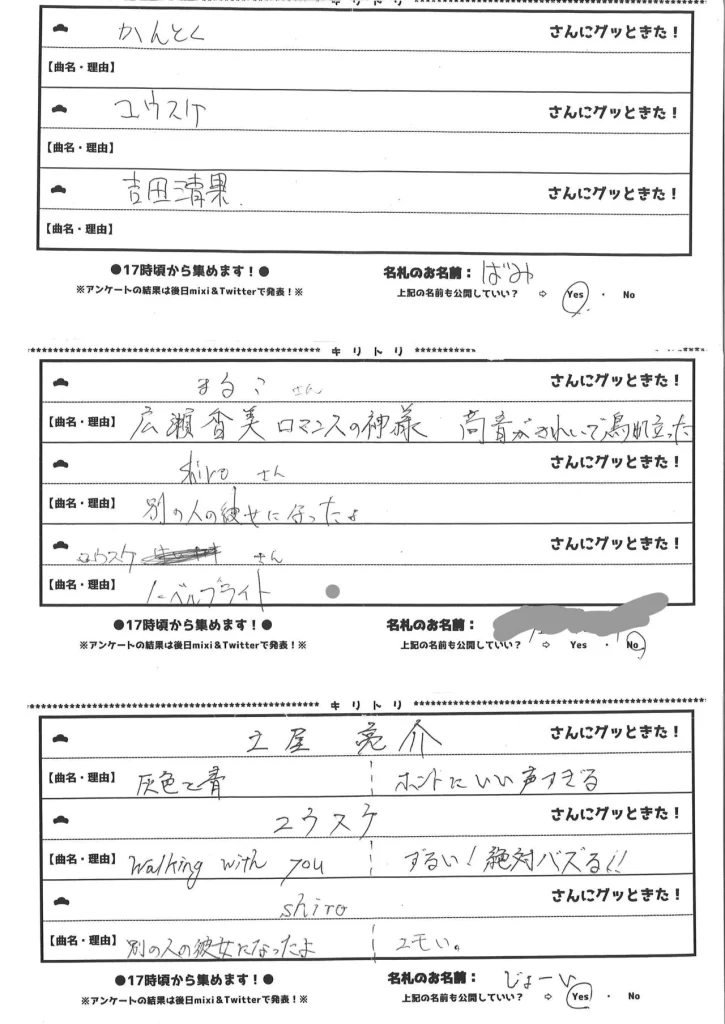 キリトリ
かんとく さんにグッときた！
【曲名・理由】
ユウスケ さんにグッときた！
【曲名・理由】
吉田清果 さんにグッときた！
【曲名・理由】
●17時頃から集めます！● 名札のお名前： ばみ
※アンケートの結果は後日mixi＆Twitterで発表！※ 上記の名前も公開していい？ ⇨ Yes ・ No
キリトリ
まるこ さん さんにグッときた！
【曲名・理由】 広瀬香美 ロマンスの神様 高音がきれいで鳥肌立った
shiro さん さんにグッときた！
【曲名・理由】 別の人の彼女になったよ
ユウスケ さん さんにグッときた！
【曲名・理由】 ノーベルブライト
●17時頃から集めます！● 名札のお名前：
※アンケートの結果は後日mixi＆Twitterで発表！※ 上記の名前も公開していい？ ⇨ Yes ・ No
キリトリ
土屋 亮介 さんにグッときた！
【曲名・理由】 灰色と青 ホントにいい声すぎる
ユウスケ さんにグッときた！
【曲名・理由】 Walking with you ずるい！絶対バズる!!
shiro さんにグッときた！
【曲名・理由】 別の人の彼女になったよ エモい。
●17時頃から集めます！● 名札のお名前： じょーい
※アンケートの結果は後日mixi＆Twitterで発表！※ 上記の名前も公開していい？ ⇨ Yes ・ No